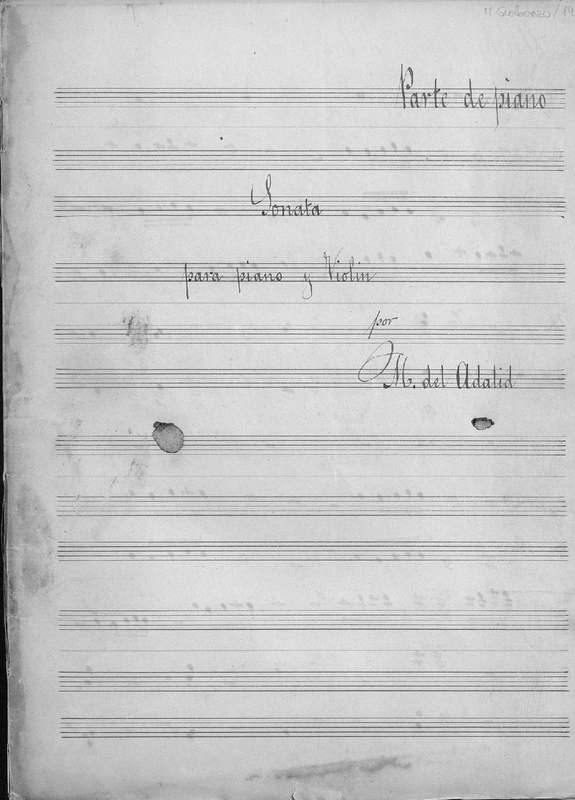 Parte de piano
Sonata
para piano y Violin
por
M. del Adalid